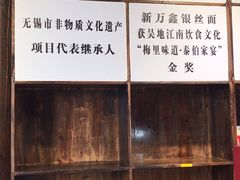 无锡市非物质文化遗产
项目代表继承人
新万鑫银丝面
获吴地江南饮食文化
“梅里味道·泰伯家宴”
金奖